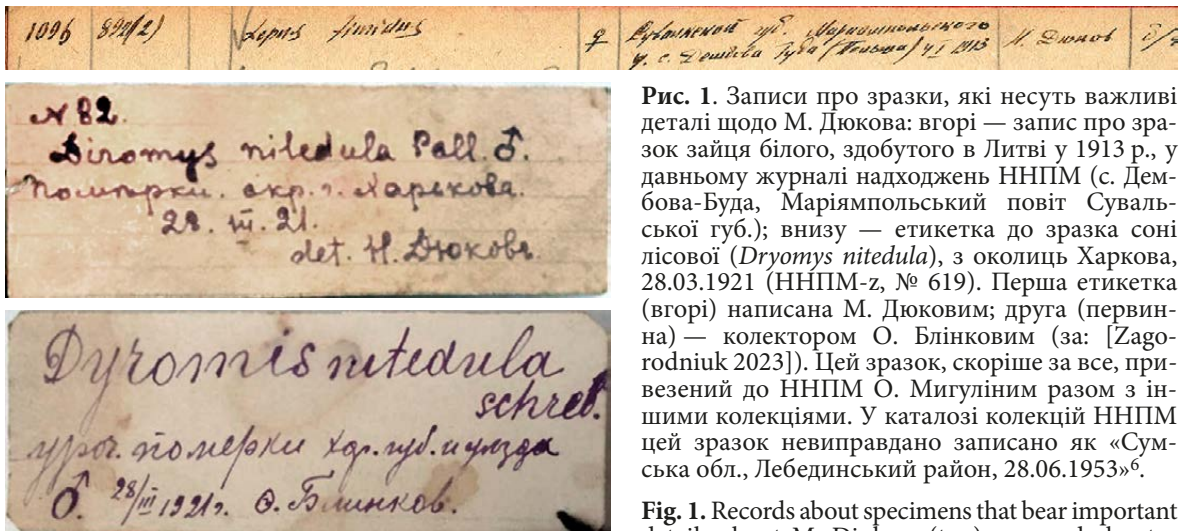 1096 892(2) Lepus timidus ♀ Сувалкской губ. Мариампольского М. Дюков
у. с. Дембова Буда (Польша) 4 I 1913
N 82.
Diromys nitedula Pall. ♂.
Помѣрки. окр. г. Харькова.
28. III. 21.
det. Н. Дюковъ.
Dyromis nitedula
schreb.
уроч. померки Хар. губ. и уезда
♂. 28/III 1921г. О. Блинков.
Рис. 1. Записи про зразки, які несуть важливі
деталі щодо М. Дюкова: вгорі — запис про зра-
зок зайця білого, здобутого в Литві у 1913 р., у
давньому журналі надходжень ННПМ (с. Дем-
бова-Буда, Маріямпольський повіт Суваль-
ської губ.); внизу — етикетка до зразка соні
лісової (Dryomys nitedula), з околиць Харкова,
28.03.1921 (ННПМ-z, № 619). Перша етикетка
(вгорі) написана М. Дюковим; друга (первин-
на) — колектором О. Блінковим (за: [Zago-
rodniuk 2023]). Цей зразок, скоріше за все, при-
везений до ННПМ О. Мигуліним разом з ін-
шими колекціями. У каталозі колекцій ННПМ
цей зразок невиправдано записано як «Сум-
ська обл., Лебединський район, 28.06.1953»⁶.
Fig. 1. Records about specimens that bear important